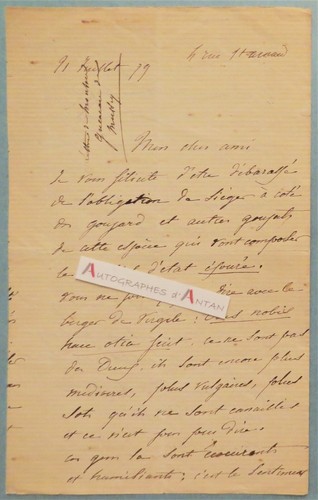 21 Juillet 79
4 rue St Arnaud
Mon cher ami
Je vous félicite d'être débarassé
de l'obligation de siéger à côté
des goujard et autres goujats
de cette espèce qui vont composer
le d'état épuré.
AUTOGRAPHES d'ANTAN
Vous ne dire avec le
berger de Virgile : Deus nobis
haec otia fecit, ce ne sont pas
des Dieux, ils sont encore plus
médiocres, plus vulgaires, plus
sots qu'ils ne sont canailles
et ce n'est pas peu dire.
ces gens là sont écoeurants
et humiliants ; c'est le sentiment